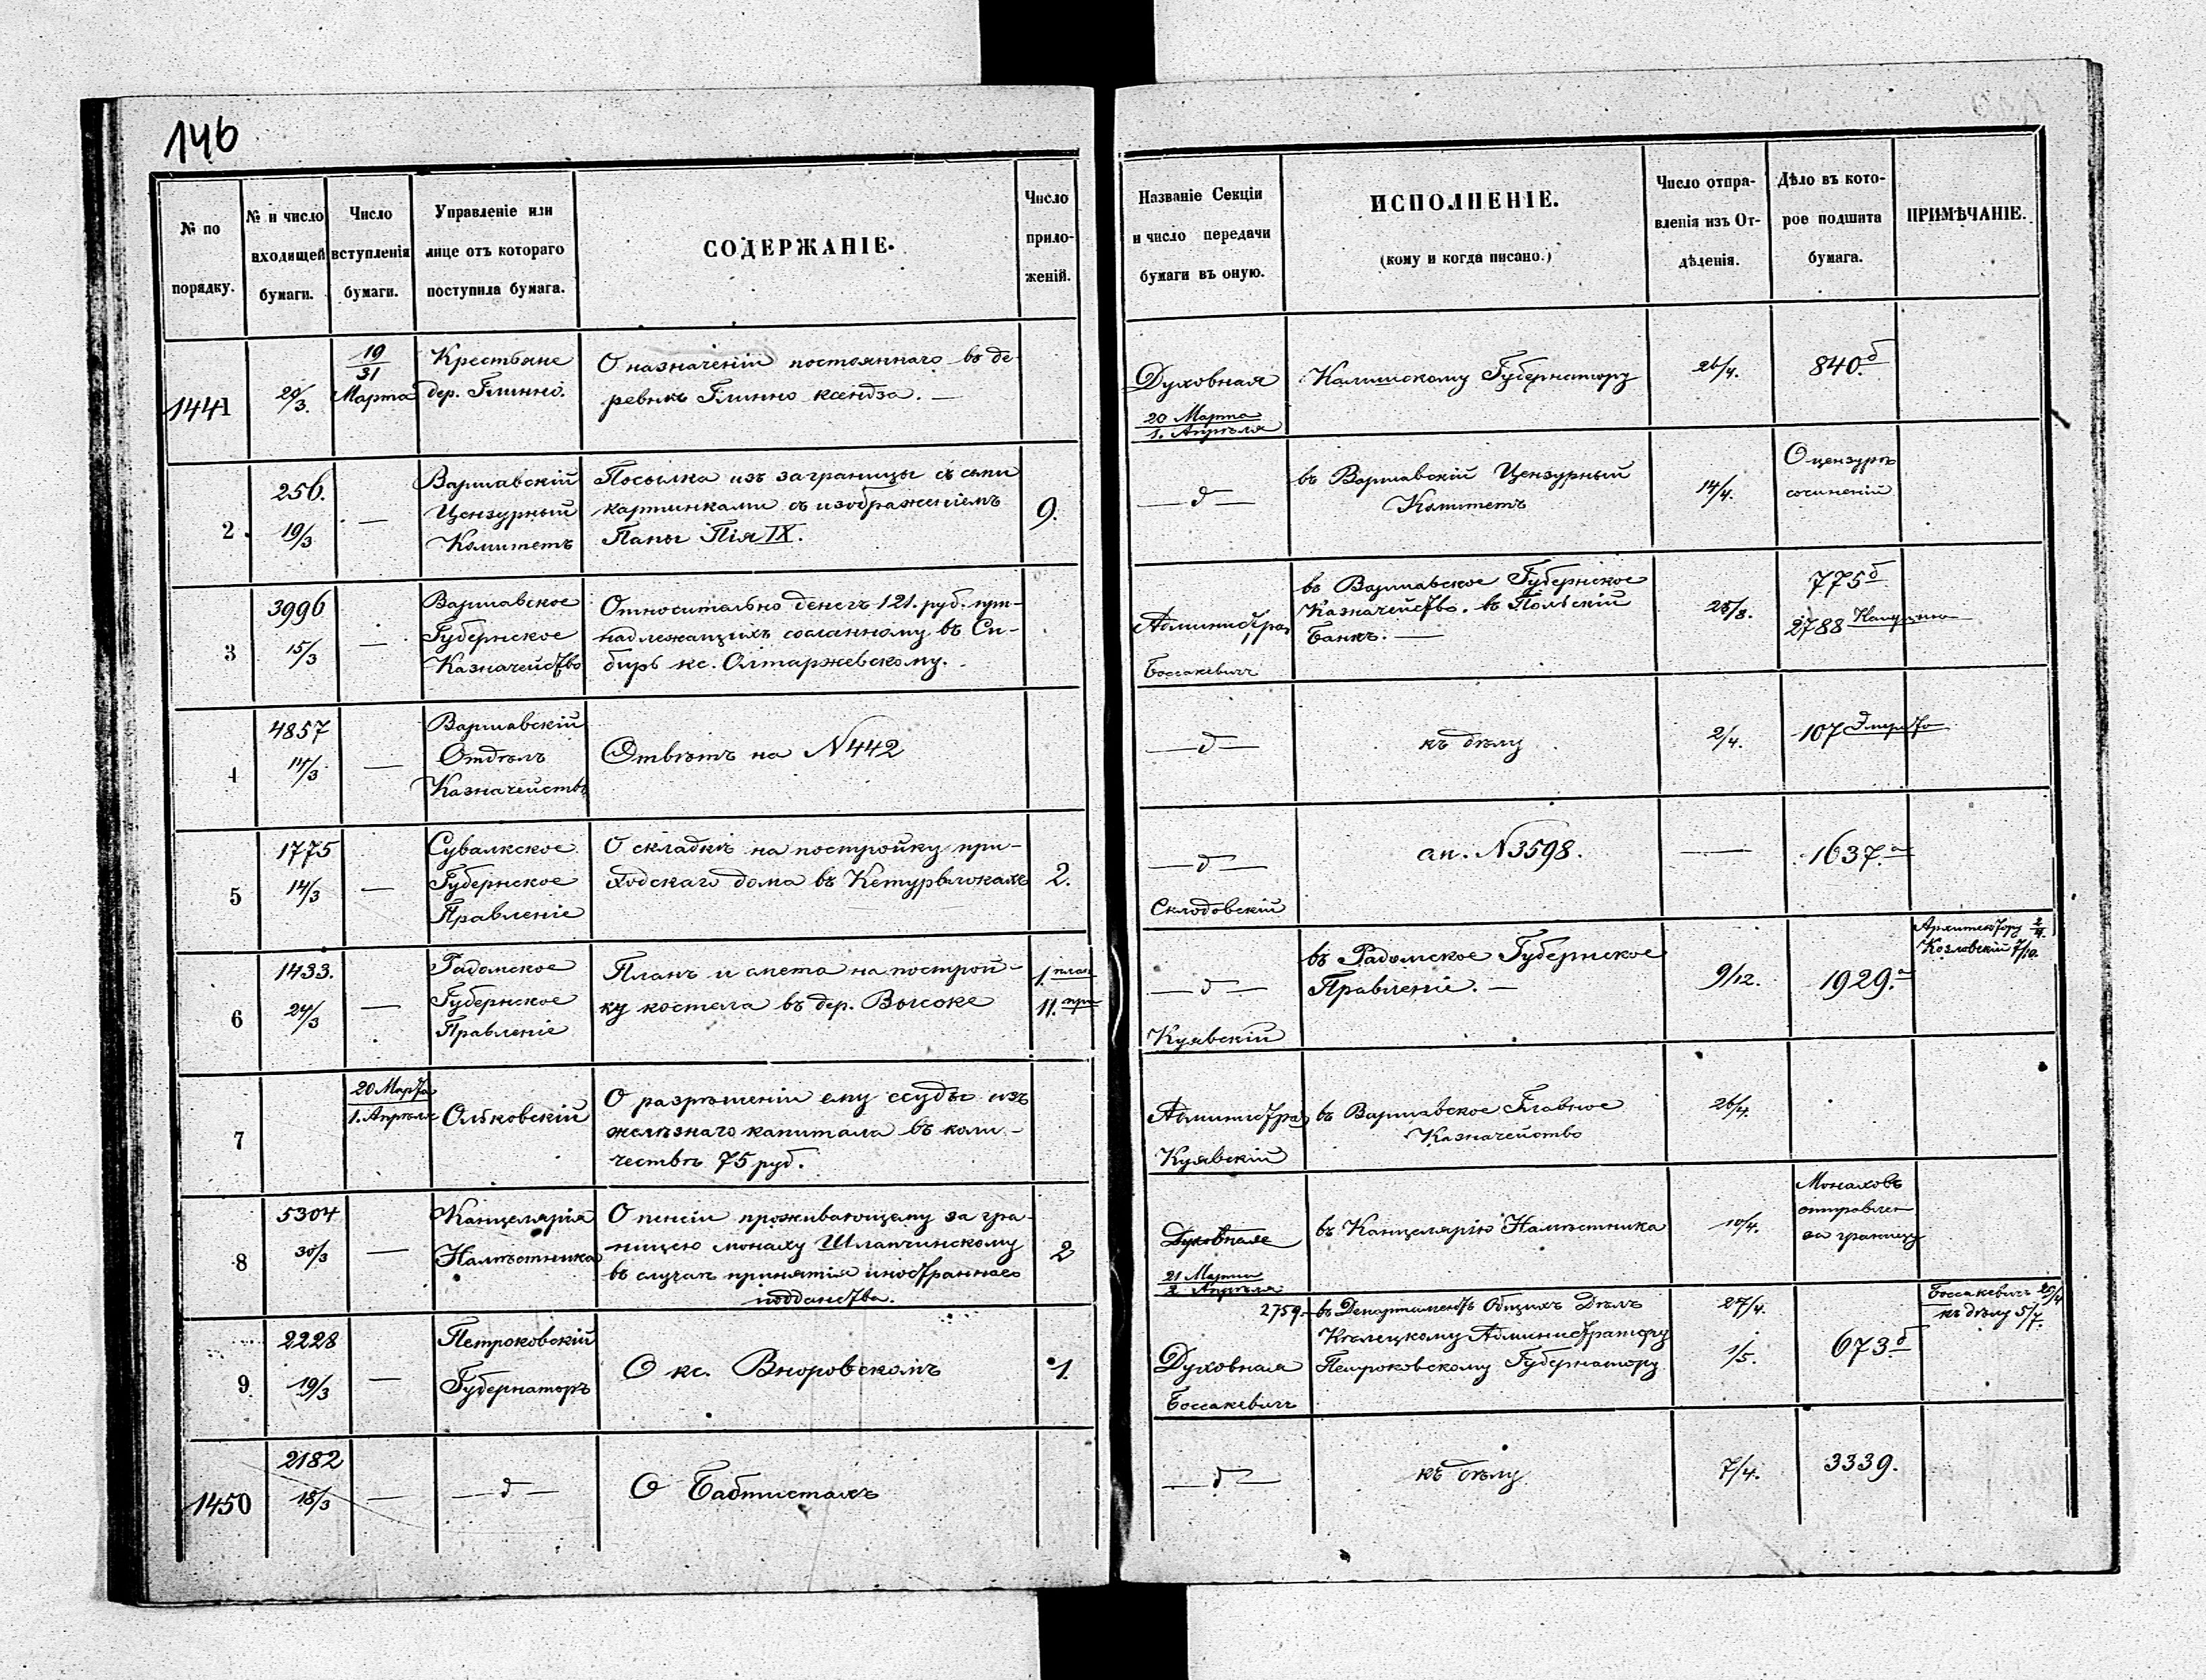 146
№ по порядку.
№ и число входящей бумаги.
Число вступленія бумаги.
Управленіе или лице отъ котораго поступила бумага.
СОДЕРЖАНІЕ.
Число приложеній.
Названіе Секціи и число передачи бумаги въ оную.
ИСПОЛНЕНІЕ.
(кому и когда писано.)
Число отправленія изъ Отдѣленія.
Дѣло въ которое подшита бумага.
ПРИМѢЧАНІЕ.
1441
20/3.
19/31 Марта
Крестьяне
дер. Глинно.
О назначеніи постояннаго въ де-
ревнѣ Глинно ксендза. —
Духовная
20 Марта
1. Апрѣля
Калишскому Губернатору
26/4.
840.б
2.
256.
19/3
—
Варшавскій
Цензурный
Комитетъ
Посылка изъ заграницы съ
картинками съ изображеніемъ
Папы Пія IX.
9.
— д —
въ Варшавскій Цензурный
Комитетъ
14/4.
О цензурѣ
сочиненій
3
3996
15/3
—
Варшавское
Губернское
Казначейство
Относительно денегъ 121. руб. при-
надлежащихъ сосланному въ Си-
бирь кс. Олтаржевскому.
Администрац
Боссакевичъ
въ Варшавское Губернское
Казначейство. въ Польскій
Банкъ. —
25/8.
775б
2788
4
4857
14/3
—
Варшавскій
Отдѣлъ
Казначейства
Отвѣтъ на N442
— д —
къ дѣлу
2/4.
107
5
1775
14/3
—
Сувалкское
Губернское
Правленіе
О складкѣ на постройку при-
ходскаго дома въ Кетурвлокахъ
2.
— д —
Склодовскій
ап. N3598.
—
1637.а
6
1433.
24/3
—
Радомское
Губернское
Правленіе
Планъ и смета на построй-
ку костела въ дер. Высоке
1. план
11. при
— д —
Куявскій
въ Радомское Губернское
Правленіе. —
9/12.
1929.а
Архитектору 2/4.
Козловскій 7/10.
7
20 Марта
1. Апрѣля
Ольковскій
О разрѣшеніи ему ссуды изъ
желѣзнаго капитала въ коли-
чествѣ 75 руб.
Администра
Куявскій
въ Варшавское Главное
Казначейство
26/4.
8
5304
30/3
—
Канцелярія
Намѣстника
О пенсіи проживающему за гра-
ницею монаху Шлапчинскому
въ случаѣ принятія иностраннаго
подданства.
2
Духовная
21 Марта
2 Апрѣля
въ Канцелярію Намѣстника
10/4.
Монаховъ
отправлен
за границу
9
2228
19/3
—
Петроковскій
Губернаторъ
О кс. Вноровскомъ
1.
Духовная
Боссакевичъ
2759. въ Департаментъ Общихъ Дѣлъ
Кѣлецкому Администратору
Петроковскому Губернатору
27/4.
1/5.
673б
Боссакевичъ 29/4
къ дѣлу 5/7.
1450
2182
18/3
—
— д —
О Баптистахъ
— д —
къ дѣлу
7/4.
3339.